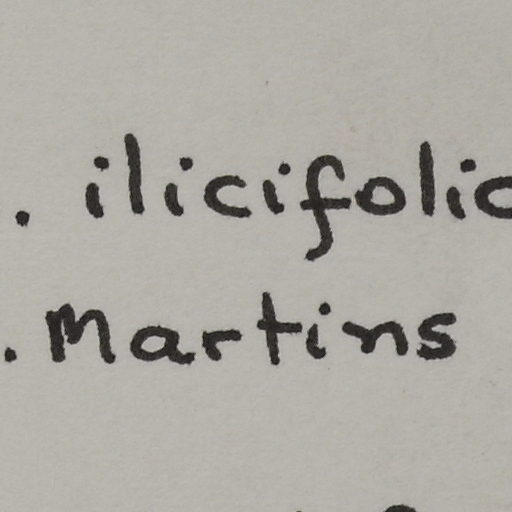 . ilicifolia
. Martins